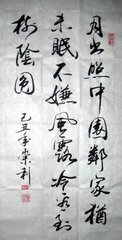 月出照中園鄰家猶
未眠不嫌風露冷看到
樹陰圓
己丑年榮利